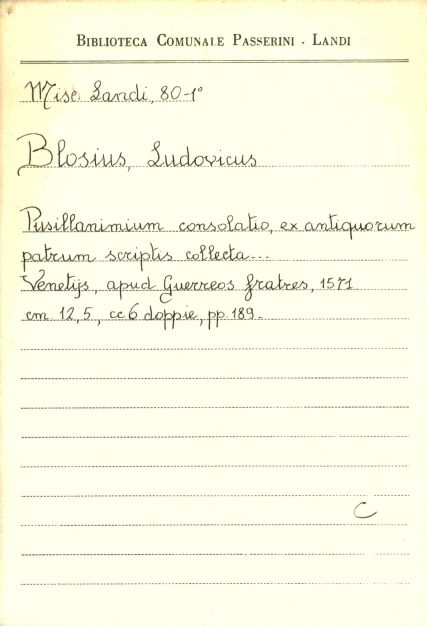 BIBLIOTECA COMUNALE PASSERINI - LANDI
Misc. Landi, 80-1°
Blosius, Ludovicus
Pusillanimium consolatio, ex antiquorum
patrum scriptis collecta...
Venetijs, apud Guerreos fratres, 1571
cm 12,5, cc 6 doppie, pp. 189.
C